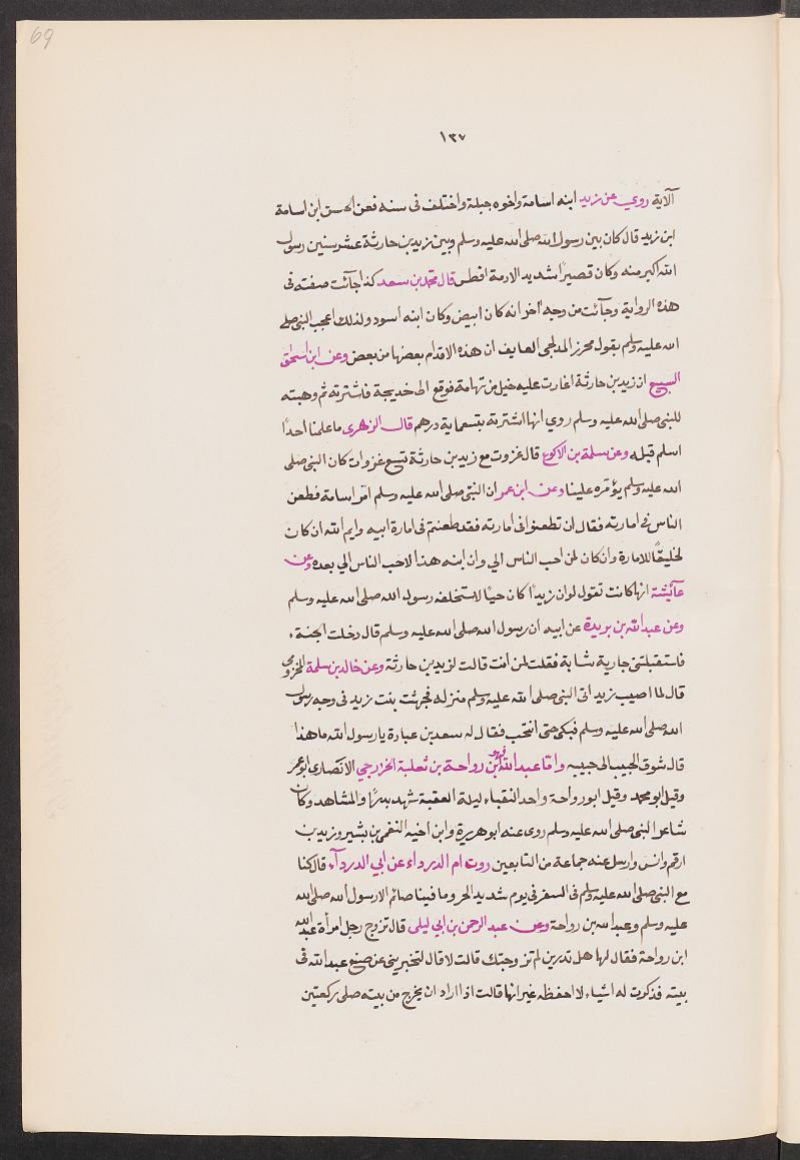 69
١٢٧
الآية روي عن زيد ابنه اسامة واخوه جبلة واختلف فى سنه فعن الحسن ابن اسامة
ابن زيد قال كان بين رسول الله صلى الله عليه وسلم وبين زيد بن حارثة عشر سنين رسول
الله اكبر منه وكان قصيرًا شديد الادمة افطس قال محمد بن سعد كذا جآئت صفته فى
هذه الرواية وجآئت من وجه آخر انه كان ابيض وكان ابنه اسود ولذلك اعجب النبى صلى
الله عليه وسلم بقول محرز المدلجى العايف ان هذه الاقدام بعضها من بعض وعن ابن اسحق
السبيع ان زيد بن حارثة اغارت عليه خيل من تهامة فوقع الى خديجة فاشترته ثم وهبته
للنبى صلى الله عليه وسلم روي انها اشترته بتسعماية درهم قال الزهرى ما علمنا احدًا
اسلم قبله وعن سلمة بن الاكوع قال غزوت مع زيد بن حارثة تسع غزوات كان النبى صلى
الله عليه وسلم يؤمّره علينا وعن ابن عمر ان النبى صلى الله عليه وسلم امّر اسامة فطعن
الناس فى امارته فقال ان تطعنوا فى امارته فقد طعنتم فى امارة ابيه وايم الله ان كان
لخليقًا للامارة وان كان لمن احب الناس الي وان ابنه هذا لاحب الناس الي بعده وعن
عآئشة انها كانت تقول لو ان زيدًا كان حيًا لاستخلفه رسول الله صلى الله عليه وسلم
وعن عبد الله بن بريدة عن ابيه ان رسول الله صلى الله عليه وسلم قال دخلت الجنة،
فاستقبلتنى جارية شابة فقلت لمن انت قالت لزيد بن حارثة وعن خالد بن سلمة المخزومى
قال لما اصيب زيد اتى النبى صلى الله عليه وسلم منزله فجهئت بنت زيد فى وجه رسول
الله صلى الله عليه وسلم فبكى حتى انتحب فقال له سعد بن عبارة يا رسول الله ما هذا
قال شوق الحبيب الى حبيبه وامّا عبد الله بن رواحة بن ثعلبة الخزرجي الانصارى ابو عمر
وقيل ابو محمد وقيل ابو رواحة واحد النقباء ليلة العقبة شهد بدرًا والمشاهد وكان
شاعر النبى صلى الله عليه وسلم روى عنه ابو هريرة وابن اخيه النعمن بن بشير وزيد بن
ارقم وانس وارسل عنه جماعة من التابعين روت ام الدرداء عن ابي الدردآء قال كنا
مع النبى صلى الله عليه وسلم فى السفر فى يوم شديد الحر وما فينا صائم الا رسول الله صلى الله
عليه وسلم وعبد الله بن رواحة وعن عبد الرحمن بن ابي ليلى قال تزوج رجل امرأة عبد الله
ابن رواحة فقال لها هل تدرين لم تزوجتك قالت لا قال لتخبرينى عن صنيع عبد الله فى
بيته فذكرت له اشياء لا احفظه غير انها قالت اذا اراد ان يخرج من بيته صلى ركعتين